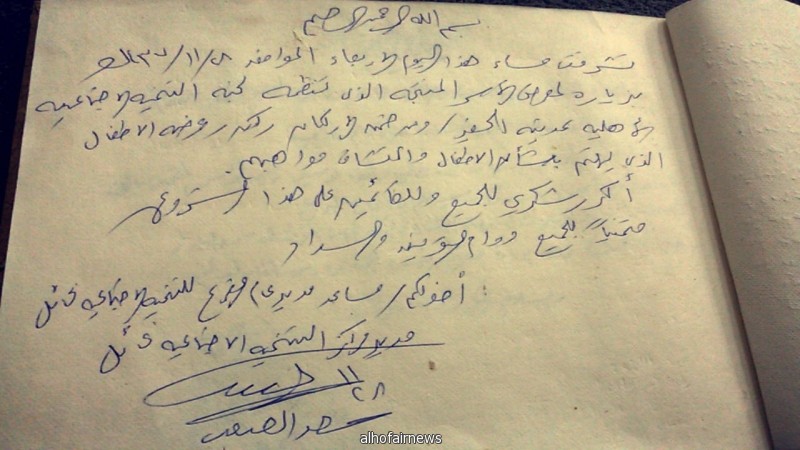 بسم الله الرحمن الرحيم
تشرفت مساء هذا اليوم الأربعاء الموافق ٢٨/١١/
بزيارة لمعرض الأسر المنتجة الذي تنظمه لجنة التنمية الاجتماعية
الأهلية بمدينة الحفير / ومن ضمنه الأركان ركن روضة الأطفال
الذي يهتم بشأن الأطفال واكتشاف مواهبهم.
أكرر شكري للجميع وللقائمين على هذا المشروع
متمنياً للجميع دوام التوفيق والسداد
أخوكم / مساعد مدير عام فرع للتنمية الاجتماعية بحائل
مدير مركز التنمية الاجتماعية بحائل
١١
٢٨
سعد
alhofairnews